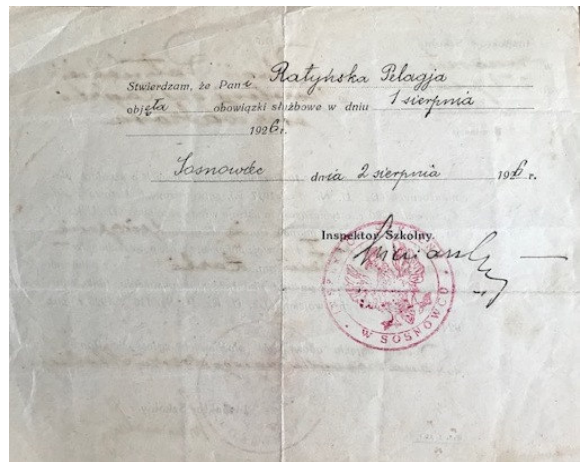 Stwierdzam, że Pani Ratyńska Pelagja
objęła obowiązki służbowe w dniu 1 sierpnia
1926 r.
Sosnowiec dnia 2 sierpnia 1926 r.
Inspektor Szkolny
INSPEKTOR SZKOLNY • W SOSNOWCU •